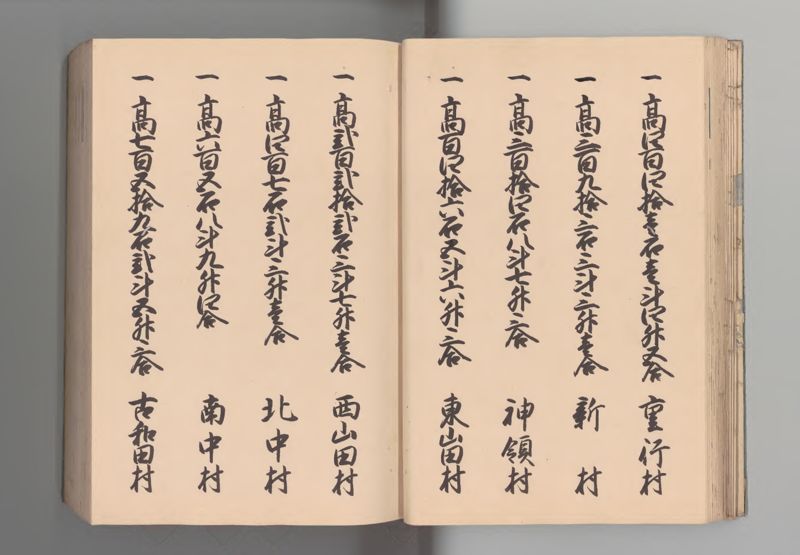 一 高四百四拾壱石壱斗四升五合 重行村
一 高三百九拾三石三斗三升壱合 新村
一 高三百拾四石八斗七升三合 神領村
一 高百四拾六石五斗六升三合 東山田村
一 高弐百弐拾弐石三斗七升壱合 西山田村
一 高四百七石弐斗三升壱合 北中村
一 高六百五石八斗九升四合 南中村
一 高七百五拾九石弐斗五升三合 古和田村